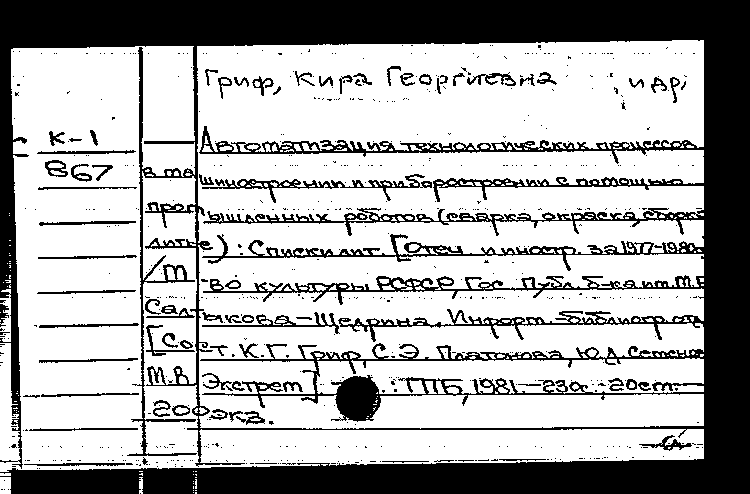 Гриф, Кира Георгиевна и др.
К-1 Автоматизация технологических процессов
867 в ма шиностроении и приборостроении с помощью
пром ышленных роботов (сварка, окраска, сборка
литье) : Списки лит. [Отеч. и иностр. за 1977-1980
/М -во культуры РСФСР, Гос. Публ. б-ка им. М.Е
Салтыкова-Щедрина. Информ.-библиогр. отд
[Сост. К.Г. Гриф, С.Э. Платонова, Ю.Д.
М.В Экстрем] : ГПБ, 1981. - 23 с. ; 20 см. -
200 экз.